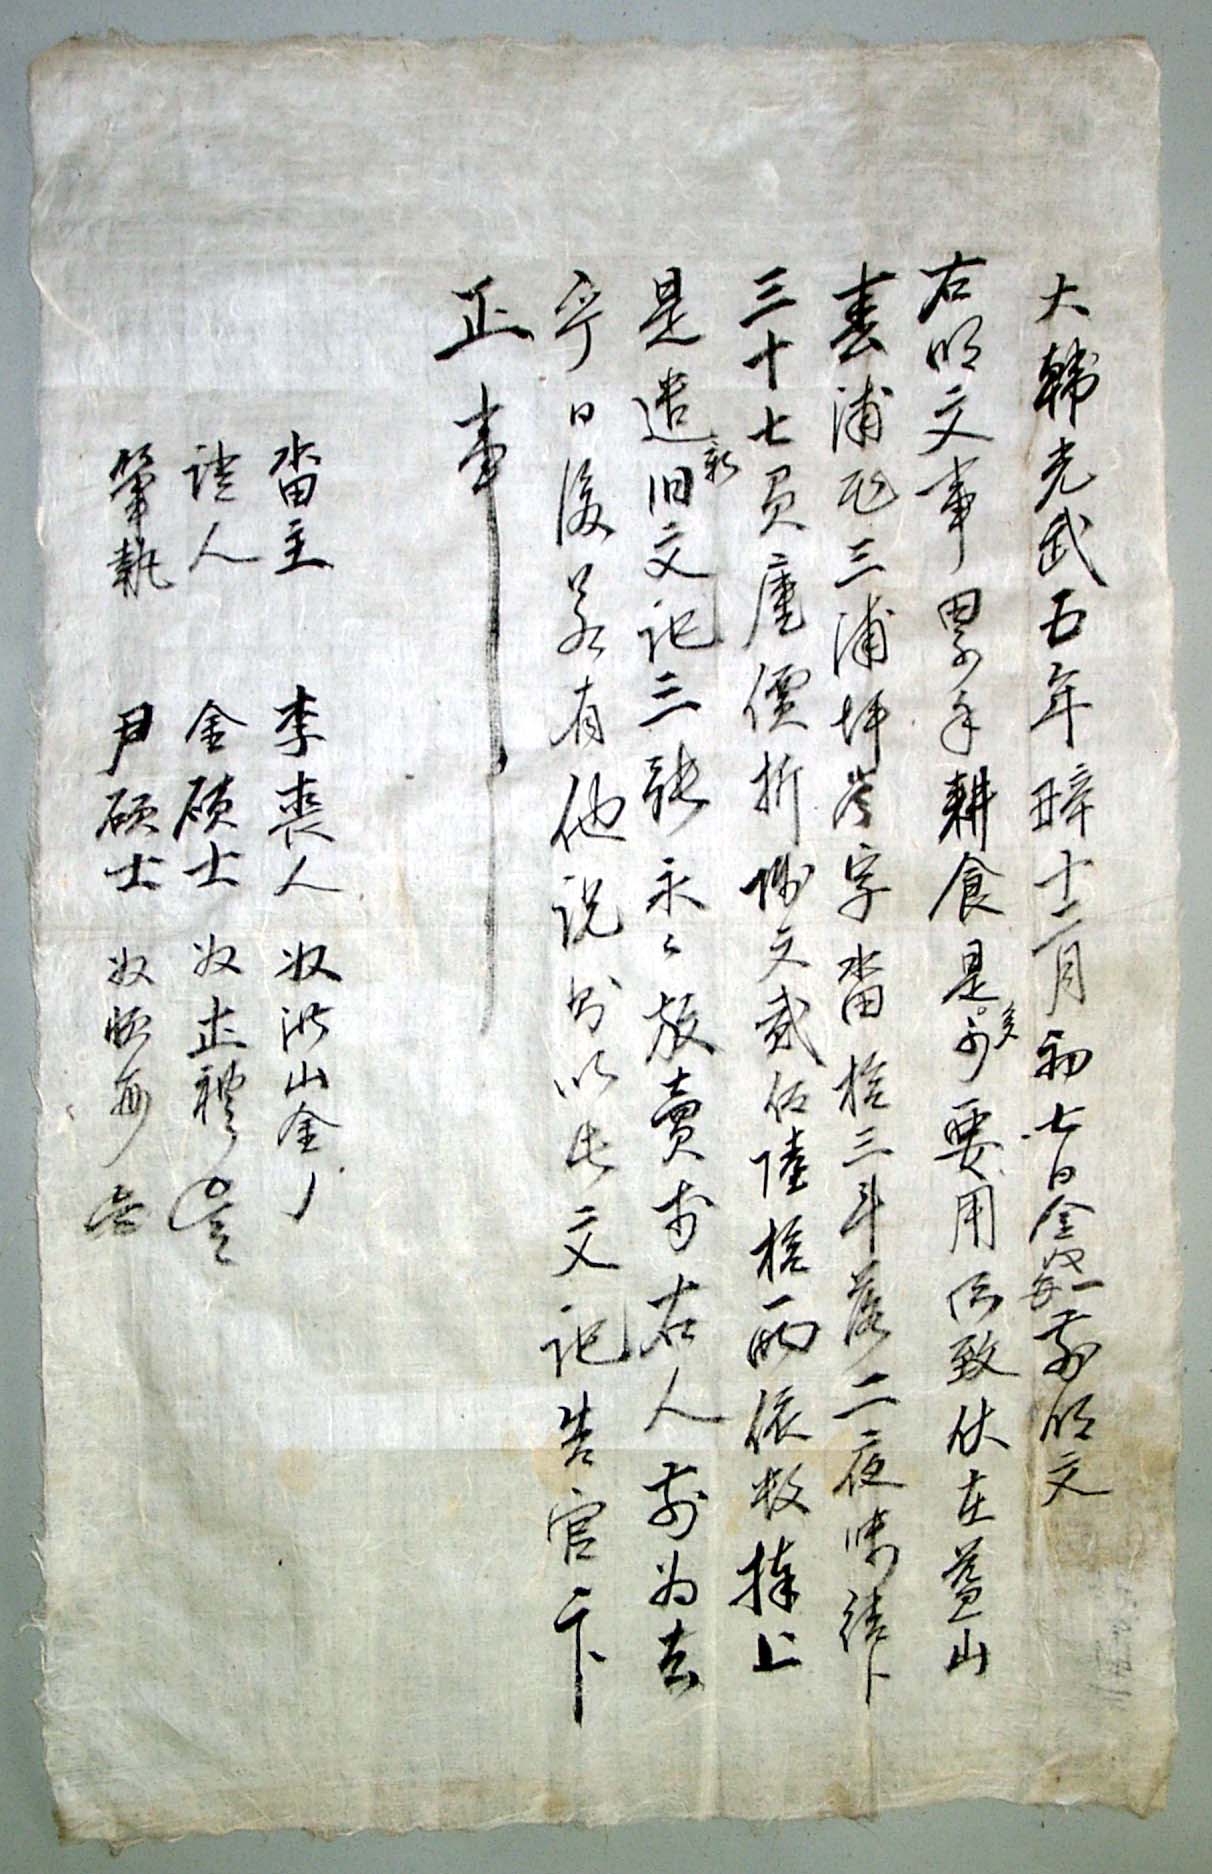 大韓光武五年辛丑十二月初七日金敏一前明文
右明文事累年耕食是多可要用所致伏在益山
春浦面三浦坪岩字畓拾三斗落二夜味結卜
三十七負庫價折錢文貳佰陸拾兩依數捧上
是遣新旧文記三張永永放賣於右人前爲去
乎日後若有他說則以此文記告官卞
正事
畓主 李喪人 奴洪山金
證人 金碩士 奴正禮
筆執 尹碩士 奴